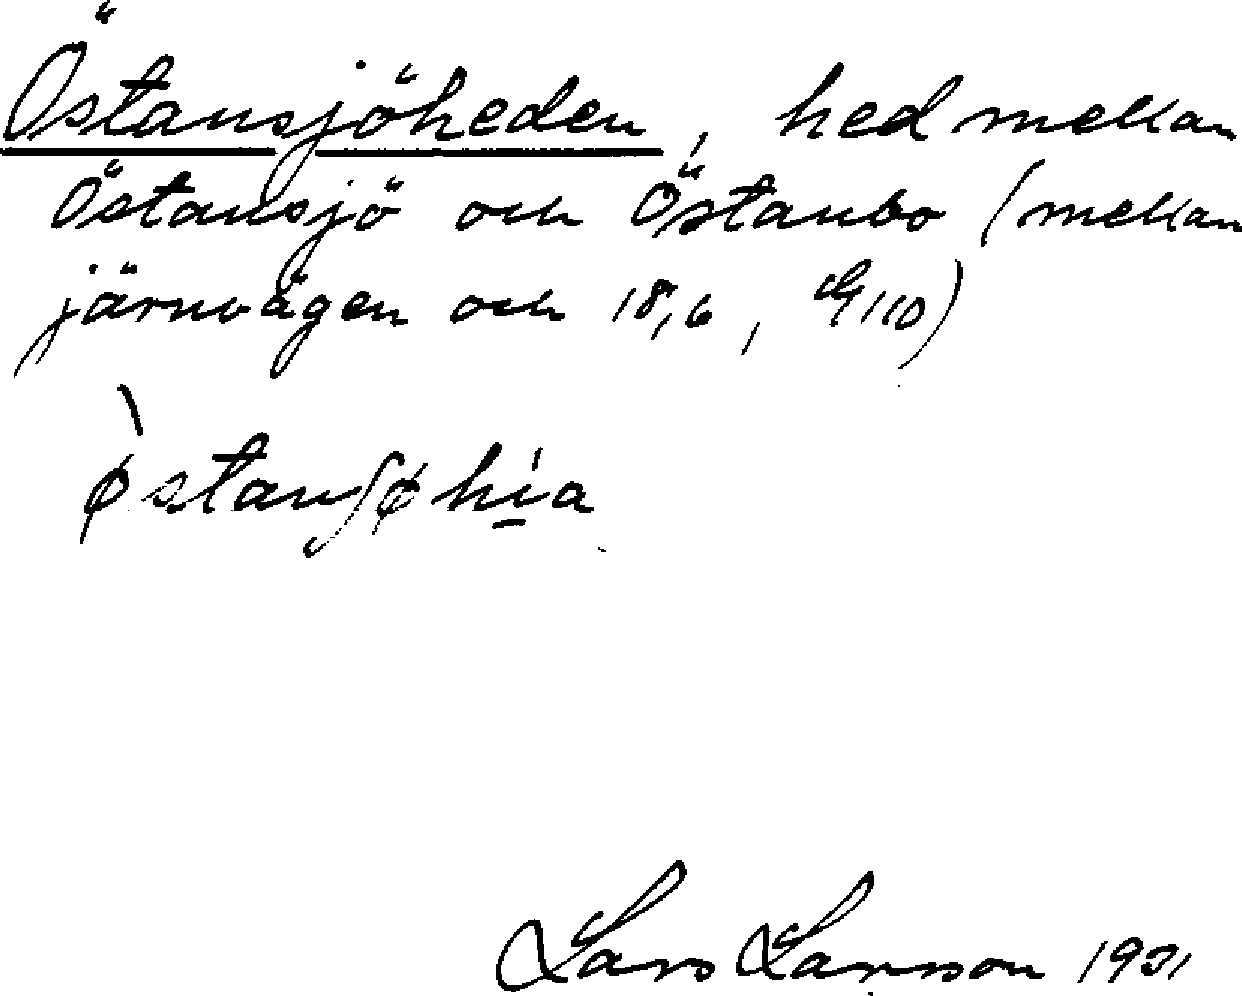 Östansjöheden, hed mellan
Östansjö och Östanbo (mellan
järnvägen och 18,6, 110)
østanʃøhia
Lars Larsson 1931